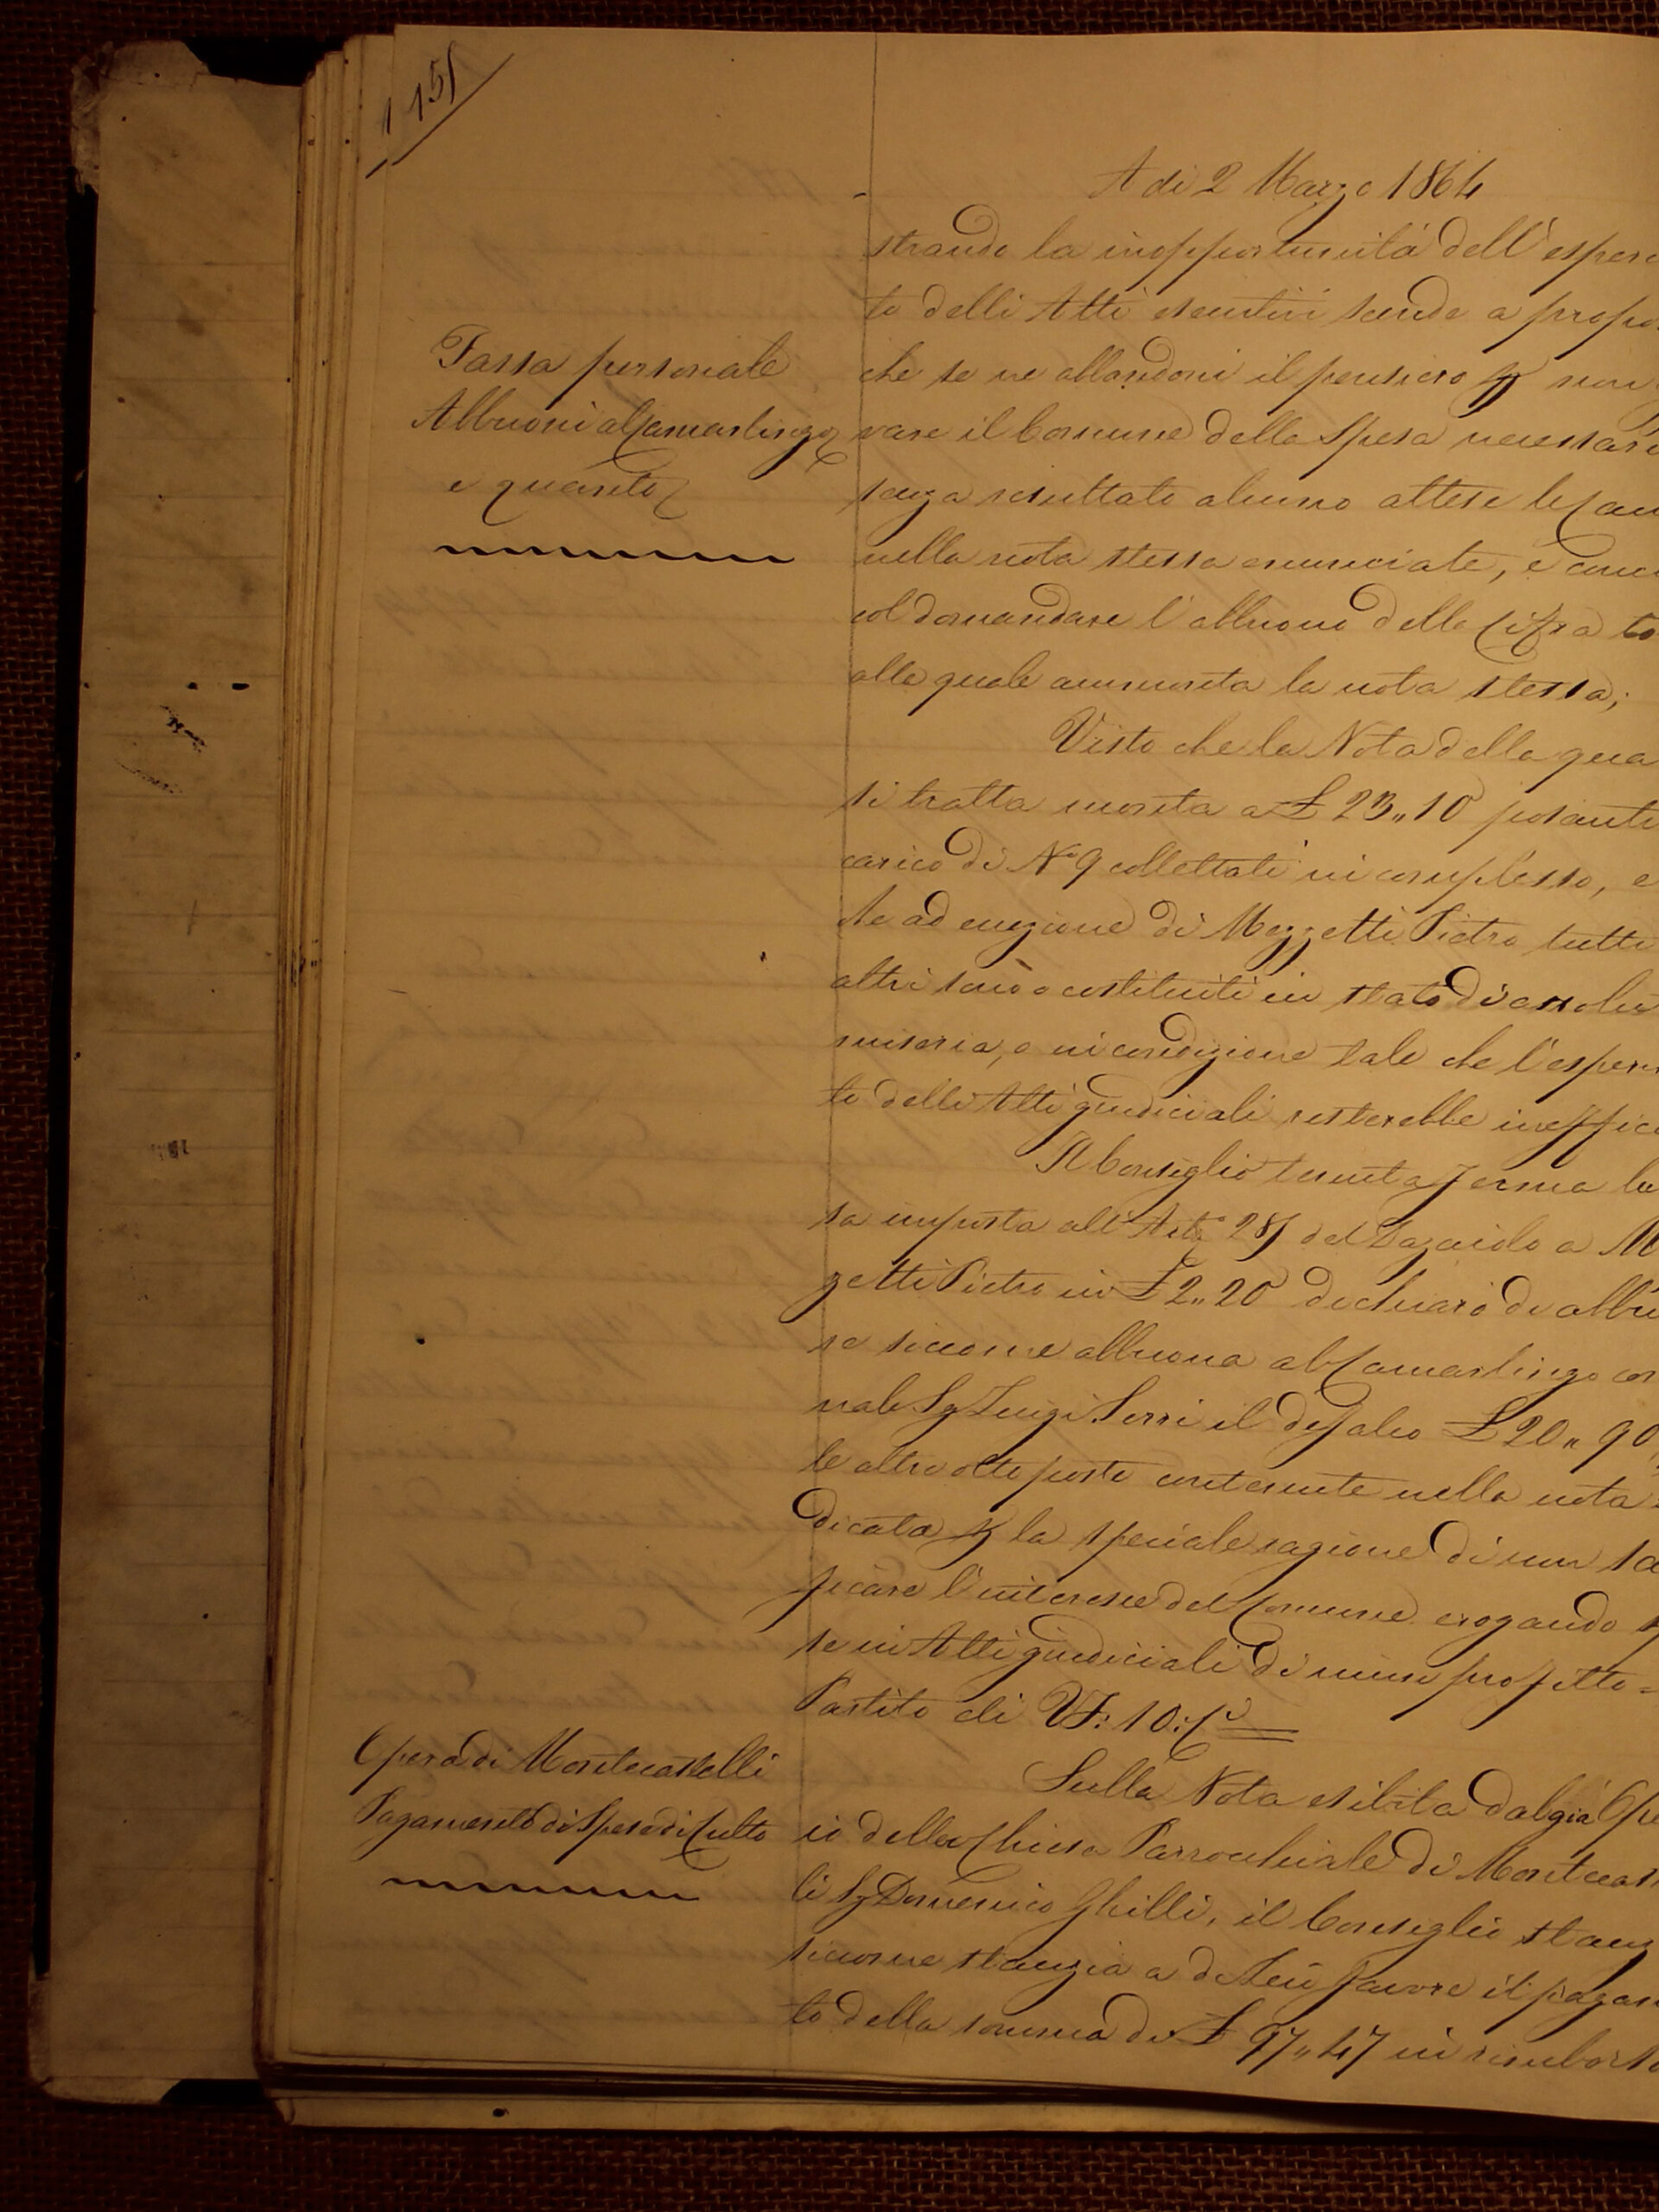 115
A dì 2 Marzo 1864
strando la inopportunità dell'espero
to delli Atti esecutivi scende a propor
Tassa personale
Abbuoni al Camarlingo
e quanto
che se ne abbandoni il pensiero non
vare il Comune della Spesa necessaria
senza resultato alcuno attese le Cau
nella nota stessa enunciate, e conc
col domandare l'abbuono della Cifra to
alla quale ammonta la nota stessa;
Visto che la Nota della qua
si tratta monta a £ 23,,10 posante
carico di N° 9 collettati in complesso, e
che ad eccezione di Mezzetti Pietro tutti
altri sono costituiti in stato di assolu
miseria, o in condizione tale che l'esperi
to delli Atti giudiciali resterebbe ineffica
Il Consiglio tenuta ferma la
sa imposta all'Art° 28 del Dazaiolo a M
zetti Pietro in £ 2,,20 dichiarò di abbu
re siccome abbuona al Camarlingo co
nale Sg Luigi Serri il defalco £ 20,,90
le altre otto poste contenute nella nota
dicata la speciale ragione di non sa
ficare l'interesse del Comune erogando
se in Atti giudiciali di niun profitto =
Partito di Vf: 10: C
Opera di Montecastelli
Pagamento di Spese di Culto
Sulla Nota esibita dal già Ope
io della Chiesa Parrocchiale di Montecas
li Sg Domenico Ghilli, il Consiglio stanz
siccome stanzia a di lui favore il pagam
to della somma di £ 97,,47 in rimborso